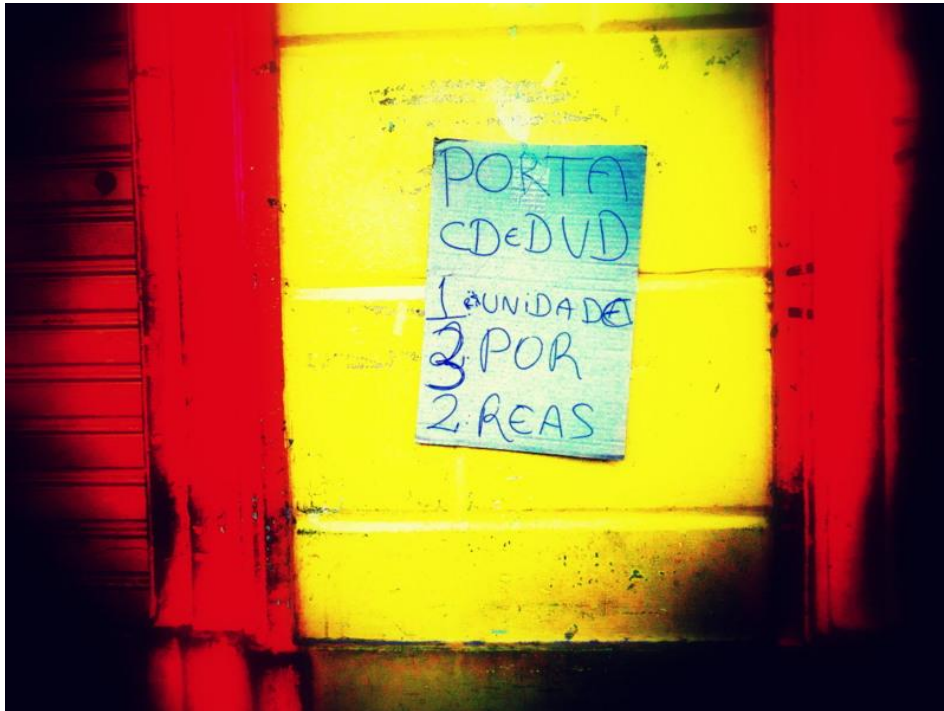 PORTA
CD e DVD
1 a UNiDADE
3 POR
2 REAS